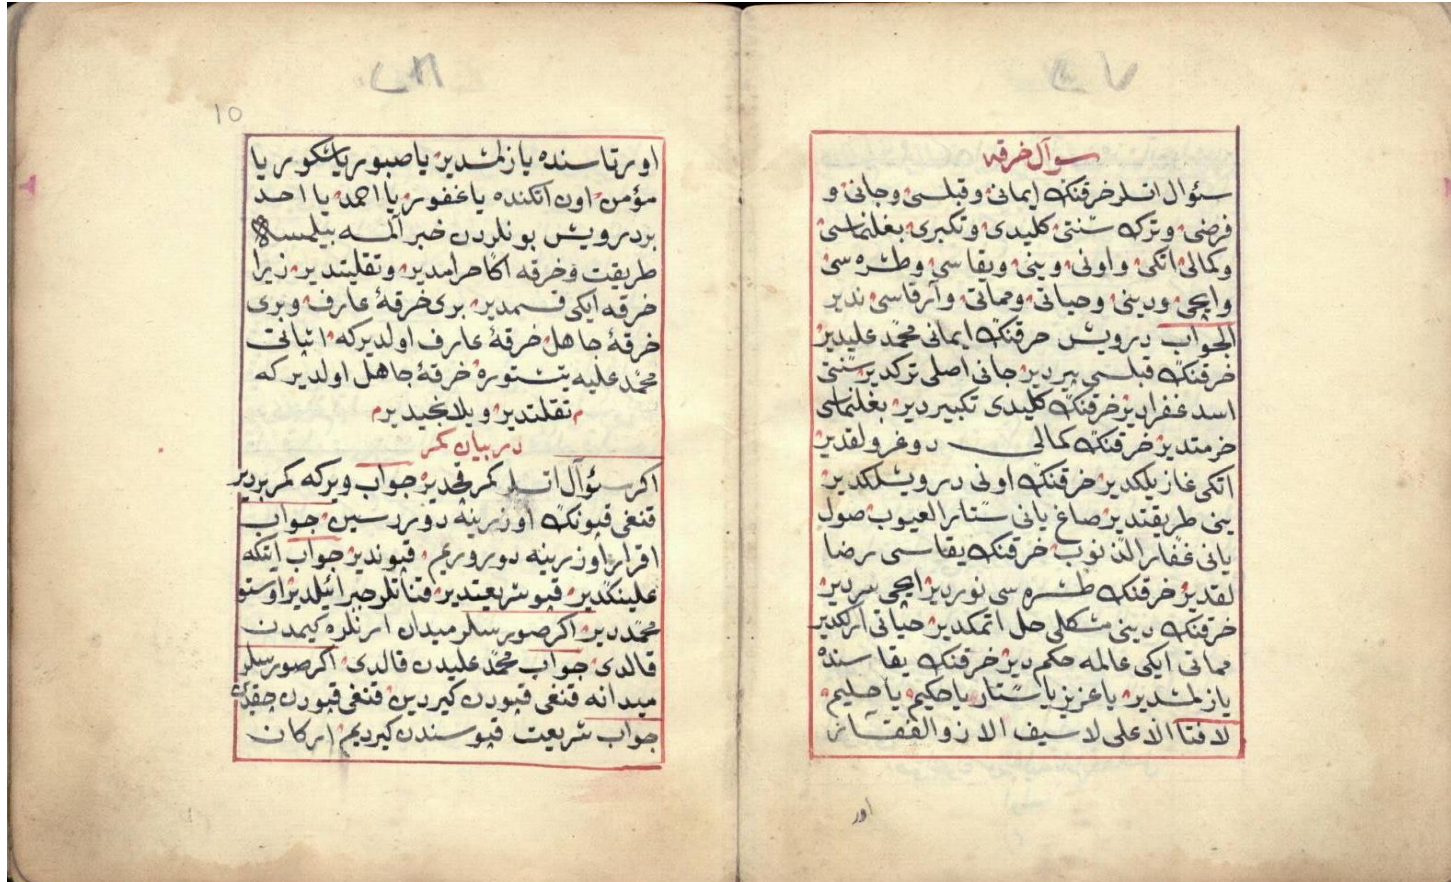 سوآل خرقه
سئوال اتسلر خرقنك ايمانى وقبلسى وجانى و
فرضى وترك سنتى كليدى وتكبرى بغلنماسى
وكمالى اتكى واونى وينى ويقاسى وطشره سى
وايچى ودينى وحياتى ومماتى وآرقاسى ندير
الجواب درويش خرقنك ايمانى محمد عليدير
خرقنك قبلسى پيردير جانى اصلى تركدير سنتى
اسد غفرادير خرقنك كليدى تكبيردير بغلنماسى
خرمتدير خرقنك كمالى دوغرولقدير
اتكى غازيلكدير خرقنك اونى درويشلكدير
ينى طريقتدير صاغ يانى ستار العيوب صول
يانى غفار الذنوب خرقنك يقاسى رضا
لقدير خرقنك طشره سى نوردير ايچى سردير
خرقنك دينى مشكلى حل اتمكدير حياتى اركدير
مماتى ايكى عالمه حكم دير خرقنك يقاسنده
يازلمشدير يا عزيز يا ستار يا حكيم يا حليم
لا فتا الا على لا سيف الا ذو الفقار
اور
10
اورتاسنده يازلمشدير يا صبور يا شكور يا
مؤمن اون اتكنده يا غفور يا احمد يا احد
بر درويش بونلردن خبر آلمسه بيلمسه
طريقت وخرقه اكا حرامدير وتقليتدير زيرا
خرقه ايكى قسمدير برى خرقهٔ عارف وبرى
خرقهٔ جاهل خرقهٔ عارف اولديركه اثباتى
محمد عليه يتشتوره خرقهٔ جاهل اولدير كه
تقلتدير ويلانجيدير
در بيان كمر
اكر سئوآل اتسلر كمر قچدير جواب وير كه كمر بردير
قنغى قپونك اوزرينه دوررسين جواب
اقرار اوزرينه دورورم قپوندير جواب ايتكه
علينكدير قپو شريعتدير قناتلر جبرائيلدير اوستو
محمددير اكر صورسلر ميدان ارنلره كيمدن
قالدى جواب محمد عليدن قالدى اكر صورسلر
ميدانه قنغى قپودن كيردين قنغى قپودن چقدك
جواب شريعت قپوسندن كيرديم اركان